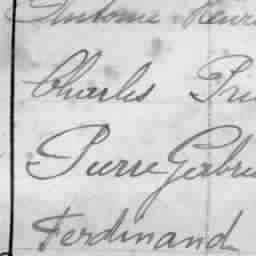 Antoine Henri
Charles Pri
Pierre Gabrie
Ferdinand